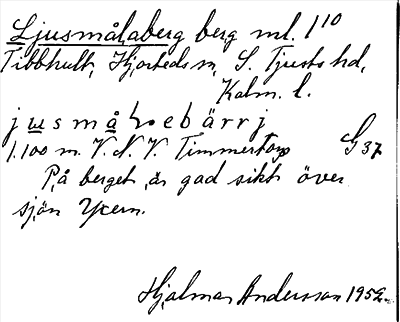 Ljusmålaberg berg ml. 1 10
Tibbhult, Hjorteds sn, S. Tjusts hd,
Kalm. l.
j u s m å l e b ä r r j
1.100 m. V. N. V. Timmertorp G 37
På berget är gad sikt över
sjön Yxern.
Hjalmar Andersson 1952